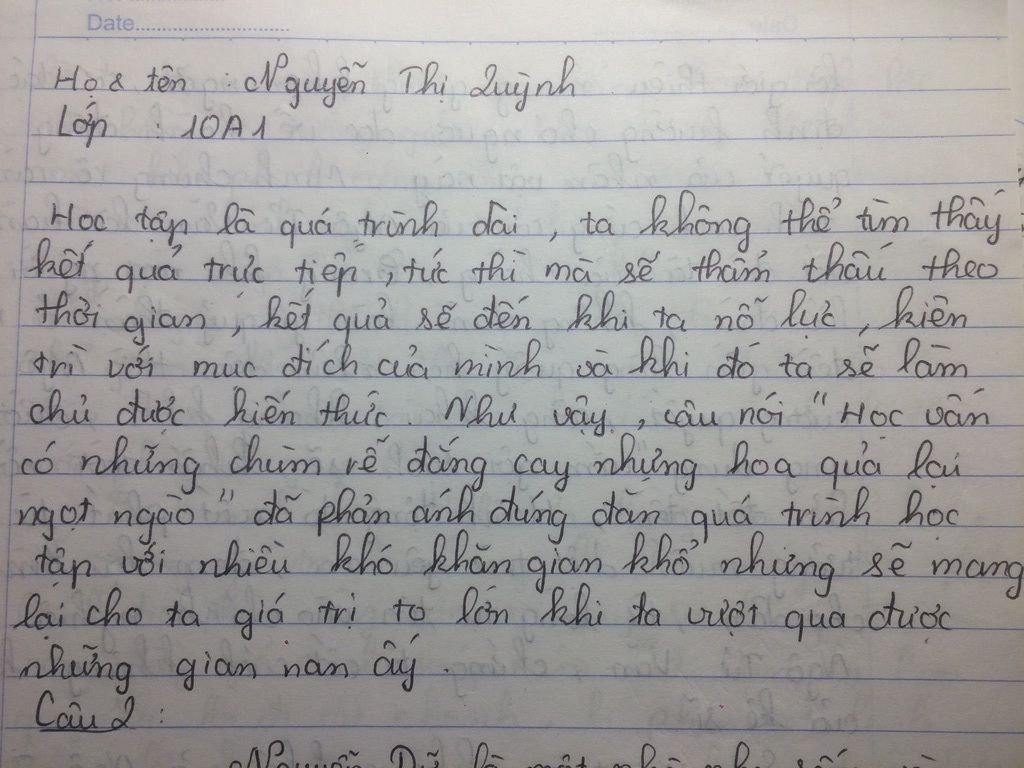 Date..............................
Họ & tên : Nguyễn Thị Quỳnh
Lớp : 10A1
Học tập là quá trình dài, ta không thể tìm thấy
kết quả trực tiếp, tức thì mà sẽ thẩm thấu theo
thời gian, kết quả sẽ đến khi ta nỗ lực, kiên
trì với mục đích của mình và khi đó ta sẽ làm
chủ được kiến thức. Như vậy, câu nói "Học vấn
có những chùm rễ đắng cay nhưng hoa quả lại
ngọt ngào" đã phản ánh đúng đắn quá trình học
tập với nhiều khó khăn gian khổ nhưng sẽ mang
lại cho ta giá trị to lớn khi ta vượt qua được
những gian nan ấy.
Câu 2 :
Nguyễn Dữ là một nhà nho sống